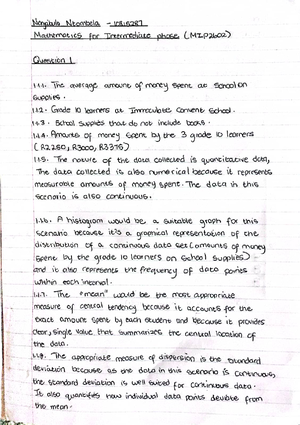 Nongilula Ntombela -
Mathematics for Intermediate phase (MIP2602)
Question 1
1.1.1. The average amount of money spent at School on
Supplies.
1.1.2. Grade 10 learners at Immaculate Convent School.
1.1.3. School supplies that do not include books.
1.1.4. Amounts of money spent by the 3 grade 10 learners
(R2250, R3000, R3375)
1.1.5. The nature of the data collected is quantitative data,
The data collected is also numerical because it represents
measurable amounts of money spent. The data in this
scenario is also continuous.
1.1.6. A histogram would be a suitable graph for this
scenario because it's a graphical representation of the
distribution of a continuous data set (amounts of money
spent by the grade 10 learners on school supplies)
and it also represents the frequency of data points
within each interval.
1.1.7. The "mean" would be the most appropriate
measure of central tendency because it accounts for the
exact amount spent by each student and because it provides
clear, single value that summarizes the central location of
the data.
1.1.8. The appropriate measure of dispersion is the standard
deviation because as the data in this scenario is continuous,
the standard deviation is well suited for continuous data.
It also quantifies how individual data points deviate from
the mean.